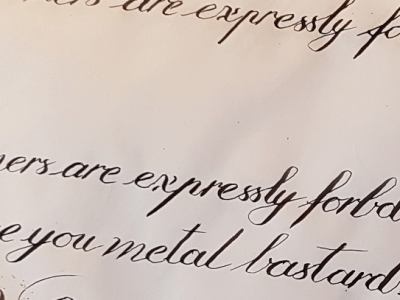 ners are expressly fo
ners are expressly forbd
e you metal bastard